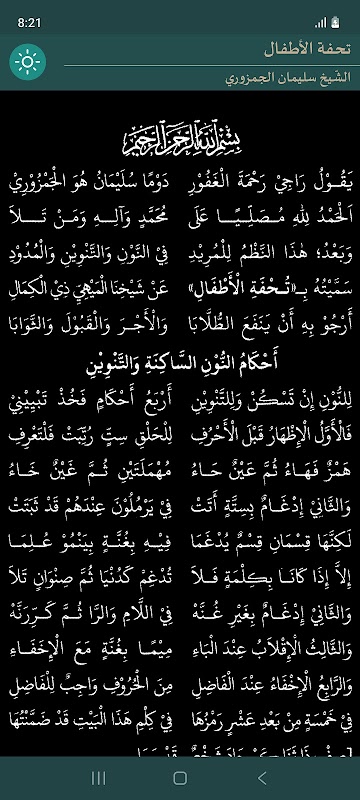 8:21
تحفة الأطفال
الشيخ سليمان الجمزوري
بِسْمِ اللَّهِ الرَّحْمَنِ الرَّحِيمِ
يَقُولُ رَاجِي رَحْمَةَ الْغَفُورِ دَوْمًا سُلَيْمَانُ هُوَ الْجَمْزُورِيْ
الْحَمْدُ لِلهِ مُصَلِّيًا عَلَى مُحَمَّدٍ وَآلِهِ وَمَنْ تَلَا
وَبَعْدُ؛ هٰذَا النَّظْمُ لِلْمُرِيدِ فِي النُّونِ وَالتَّنْوِينِ وَالْمُدُودِ
سَمَّيْتُهُ بِـ«تُحْفَةِ الْأَطْفَالِ» عَنْ شَيْخِنَا الْمِيهِيِّ ذِي الْكَمَالِ
أَرْجُو بِهِ أَنْ يَنْفَعَ الطُّلَّابَا وَالْأَجْرَ وَالْقَبُولَ وَالثَّوَابَا
أَحْكَامُ النُّوْنِ السَّاكِنَةِ وَالتَّنْوِيْنِ
لِلنُّونِ إِنْ تَسْكُنْ وَلِلتَّنْوِينِ أَرْبَعُ أَحْكَامٍ فَخُذْ تَبْيِيْنِيْ
فَالْأَوَّلُ الْإِظْهَارُ قَبْلَ الْأَحْرُفِ لِلْحَلْقِ سِتٍّ رُتِّبَتْ فَلْتَعْرِفِ
هَمْزٌ فَهَاءٌ ثُمَّ عَيْنٌ حَاءُ مُهْمَلَتَيْنِ ثُمَّ غَيْنٌ خَاءُ
وَالثَّانِيْ إِدْغَامٌ بِسِتَّةٍ أَتَتْ فِيْ يَرْمُلُونَ عِنْدَهُمْ قَدْ ثَبَتَتْ
لَكِنَّهَا قِسْمَانِ قِسْمٌ يُدْغَمَا فِيْهِ بِغُنَّةٍ بِيَنْمُو عُلِمَا
إِلَّا إِذَا كَانَا بِكِلْمَةٍ فَلَا تُدْغِمْ كَدُنْيَا ثُمَّ صِنْوَانٍ تَلَا
وَالثَّانِيْ إِدْغَامٌ بِغَيْرِ غُنَّهْ فِيْ اللَّامِ وَالرَّا ثُمَّ كَرِّرَنَّهْ
وَالثَّالِثُ الْإِقْلَابُ عِنْدَ الْبَاءِ مِيْمًا بِغُنَّةٍ مَعَ الْإِخْفَاءِ
وَالرَّابِعُ الْإِخْفَاءُ عِنْدَ الْفَاضِلِ مِنَ الْحُرُوْفِ وَاجِبٌ لِلْفَاضِلِ
فِيْ خَمْسَةٍ مِنْ بَعْدِ عَشْرٍ رَمْزُهَا فِيْ كِلْمِ هَذَا الْبَيْتِ قَدْ ضَمَّنْتُهَا